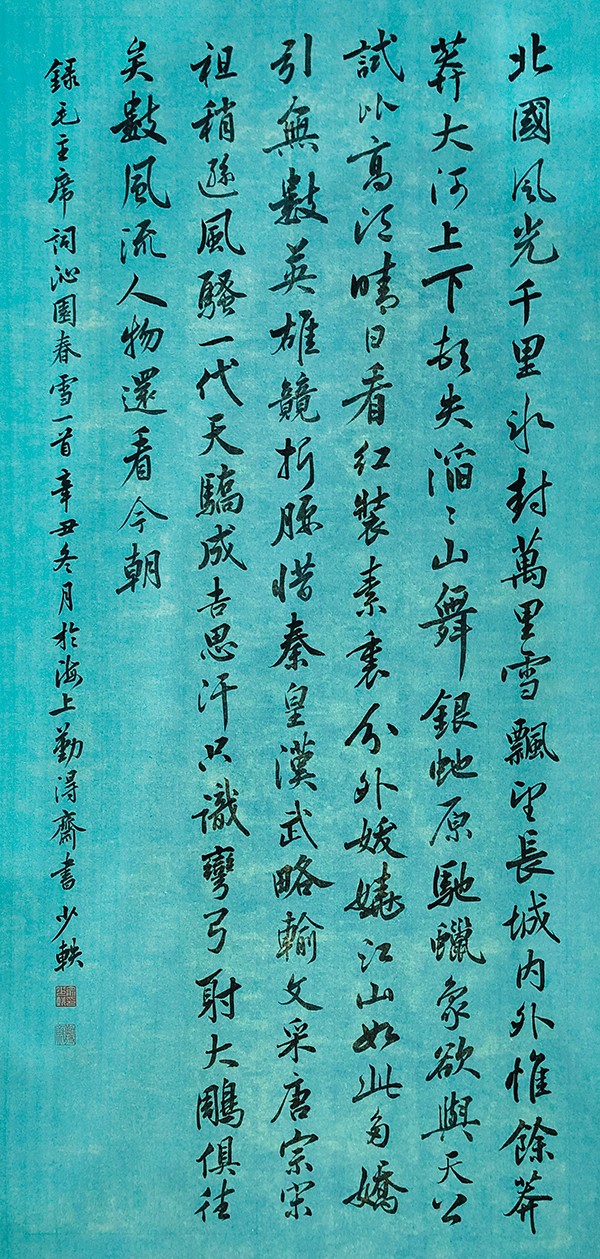 北國風光千里冰封萬里雪飄望長城內外惟餘莽
莽大河上下頓失滔〻山舞銀蛇原馳蠟象欲與天公
試比高須晴日看紅裝素裹分外妖嬈江山如此多嬌
引無數英雄競折腰惜秦皇漢武略輸文采唐宗宋
祖稍遜風騷一代天驕成吉思汗只識彎弓射大鵰俱往
矣數風流人物還看今朝
錄毛主席詞沁園春雪一首辛丑冬月於海上勤得齋書少軼